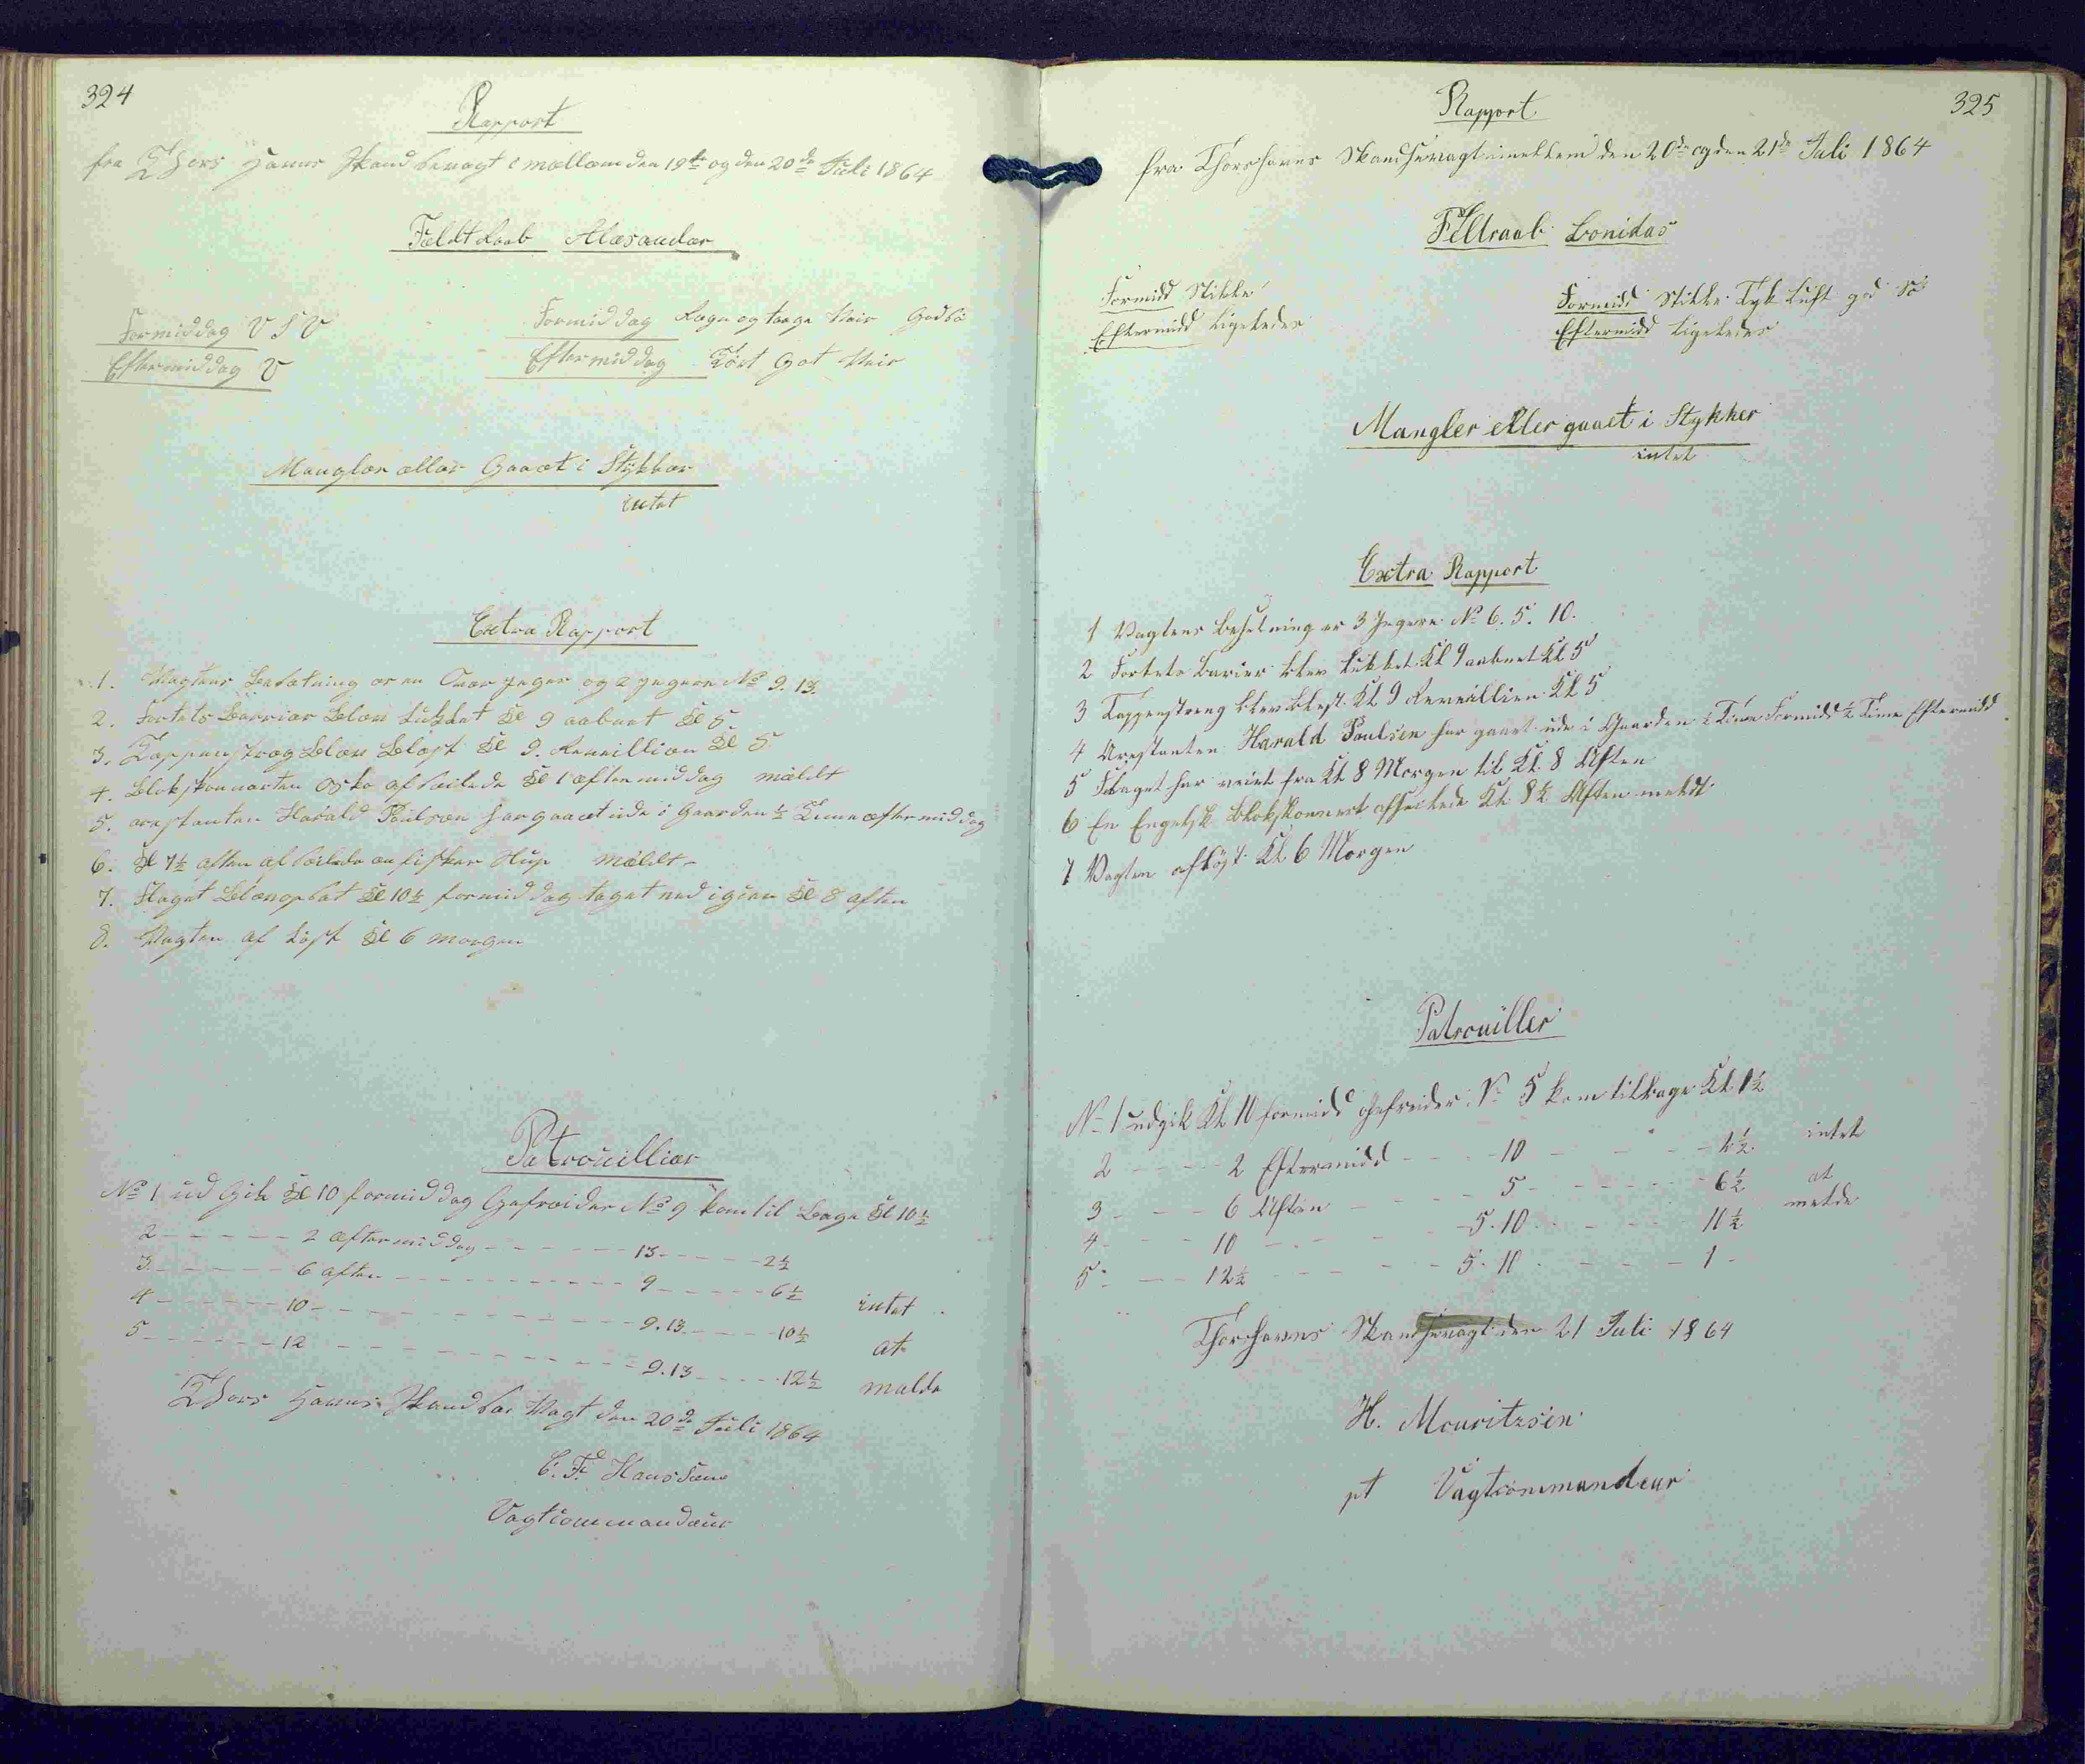 324
Rapport
fra Thors Havns Skandsevagt imellem den 19de og den 20de Juli 1864
Feldtraab Alexander
Formiddag V S V
Formiddag Regn og taage Veir God Sö
Eftermiddag V
Eftermiddag Tört Got Veir
Mangler eller Gaaet i Stÿkker
intet
Extra Rapport
1. Vagtens Besætning er en Over Jeger og 2 Jegere No 9. 13.
2. Fortets Barrier Blev Lukket Kl 9 aabnet Kl 5.
3. Tappenstræg Blev Blæst Kl 9. Reveillien Kl 5
4. Blokskonnerten Osko af Seilede Kl 1 eftermiddag meldt
5. arestanten Harald Poulsen har gaaet ude i Gaarden ½ Time eftermiddag
6. Kl 7½ aften af Seilede en fisker Hup meldt
7. Flaget Blev opsat Kl 10½ formiddag taget ned igien Kl 8 aften
8. Vagten af Löst Kl 6 morgen
Patrouillier
No 1 ud Gik Kl 10 formiddag Gefreider No 9 kom til Bage Kl 10½
2 - - - - - 2 eftermiddag - - - - - - 13 - - - - - 2½
3 - - - - - 6 aften - - - - - - - - - 9 - - - - - 6½
4 - - - - - 10 - - - - - - - - - - - 9. 13 - - - - 10½ intet
5 - - - - - 12 - - - - - - - - - - - 9. 13 - - - - 12½ at
melde
Thors Havns Skandse Vagt den 20de Juli 1864
C. F. Hanssen
Vagtcommandeur
325
Rapport
fra Thorshavns Skandsevagt imellem den 20de og den 21de Juli 1864
Feltraab Lonidas
Formidd Stille
Formidd Stille Tyk Luft god Sö
Eftermidd Ligeledes
Eftermidd Ligeledes
Mangler eller gaaet i Stykker
intet
Extra Rapport
1 Vagtens Besetning er 3 Jegere No 6. 5. 10.
2 Fortets Barier blev lukket Kl 9 aabnet Kl 5
3 Tappenstreng blev blest Kl 9 Reveillien Kl 5
4 Arestanten Harald Poulsen har gaaet ude i Gaarden ½ Time Formidd ½ Time Eftermidd
5 Flaget har veiet fra Kl 8 Morgen til Kl 8 Aften
6 En Engelsk Blokskonnert afseilede Kl 8½ Aften meldt
7 Vagten aflöst Kl 6 Morgen
Patrouiller
No 1 udgik Kl 11 formidd Gefreider No 5 kom tilbage Kl 1½
2 - - - - 2 Eftermidd - - - - 10 - - - - 2½ intet
3 - - - - 6 Aften - - - - 5 - - - - 6½ at
4 - - - - 10 - - - - 5. 10 - - - - 11½ melde
5 - - - - 12½ - - - - 5. 10 - - - - 1
Thorshavns Skandsevagt den 21 Juli 1864
H. Mouritzsen
pt Vagtcommandeur